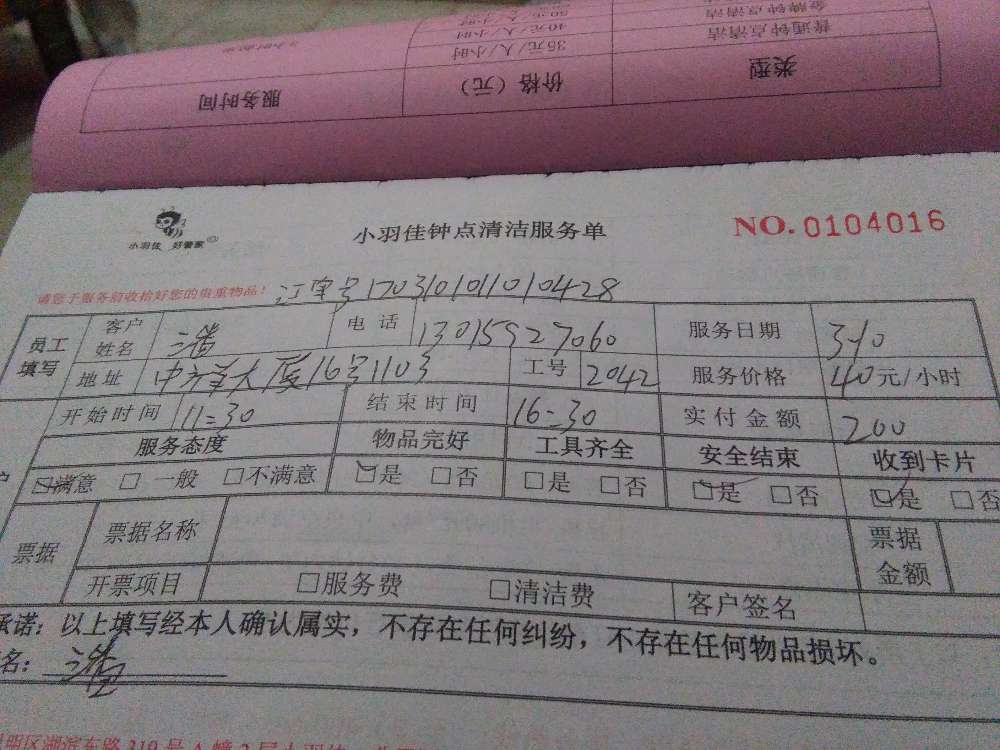 类型 价格（元） 服务时间
普通钟点清洁 35元/人/小时
40元/人/小时
金牌钟点清洁 50元/人/小时
小羽佳 好管家
小羽佳钟点清洁服务单
NO. 0104016
请您于服务前收拾好您的贵重物品！
号170310101101010428
员工填写 客户姓名 潘 电话 13015927060 服务日期 3-10
地址 大厦16号1103 工号 2042 服务价格 40元/小时
开始时间 11:30 结束时间 16:30 实付金额 200
服务态度 物品完好 工具齐全 安全结束 收到卡片
☑满意 □一般 □不满意 ☑是 □否 □是 □否 ☑是 □否 ☑是 □否
票据 票据名称 票据金额
开票项目 □服务费 □清洁费 客户签名
承诺：以上填写经本人确认属实，不存在任何纠纷，不存在任何物品损坏。
名：潘
明区湖滨东路319号A幢2层小羽佳